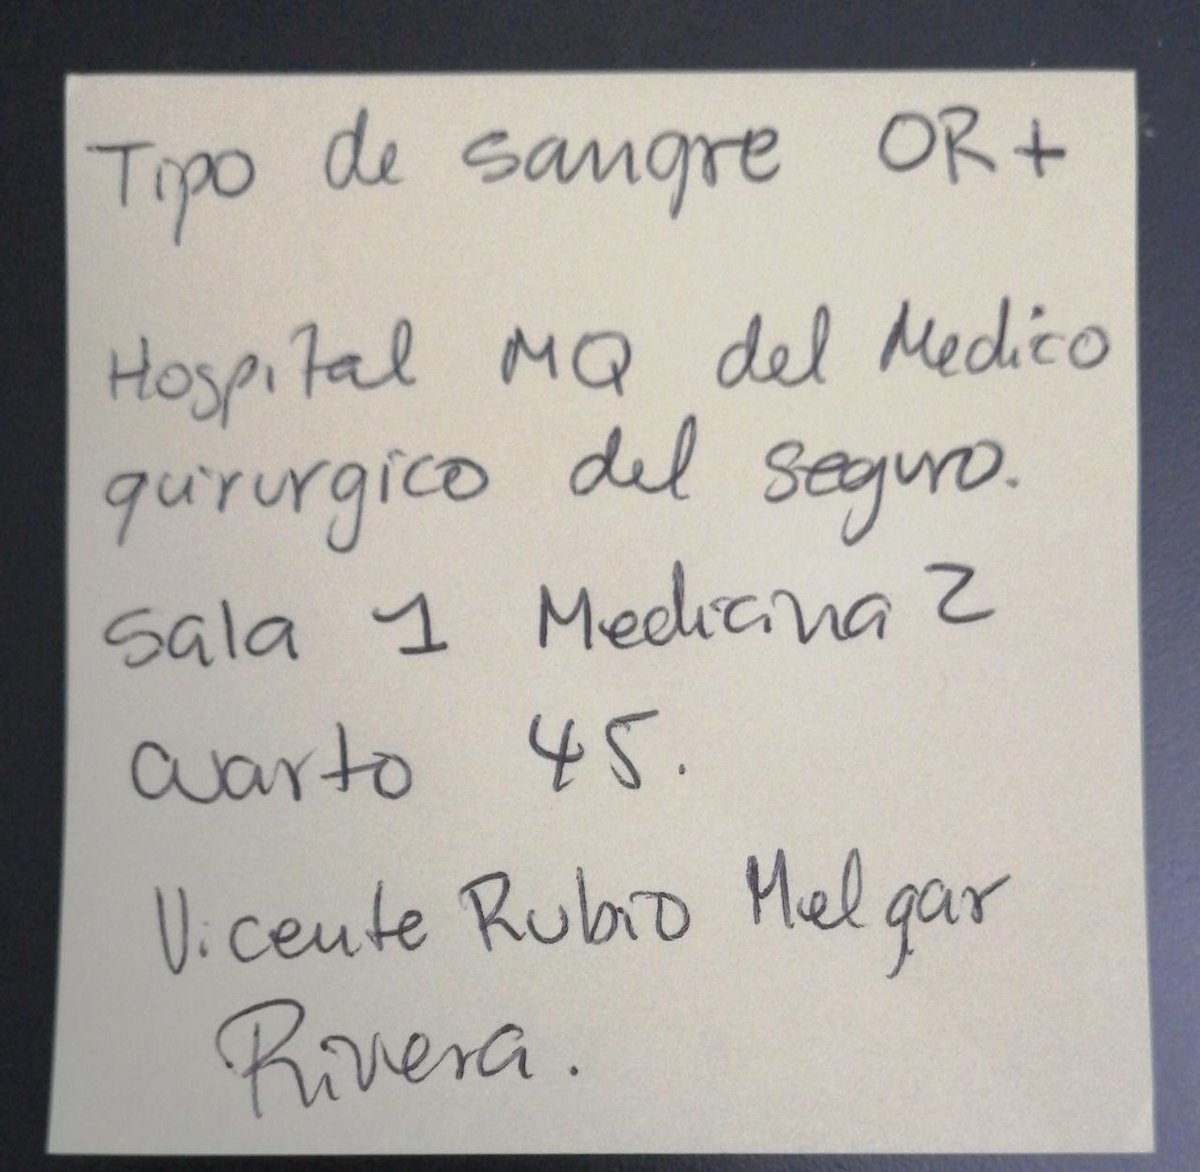 Tipo de sangre OR+
Hospital MQ del Medico
quirurgico del seguro.
Sala 1 Medicina 2
cuarto 45.
Vicente Rubio Melgar
Rivera.